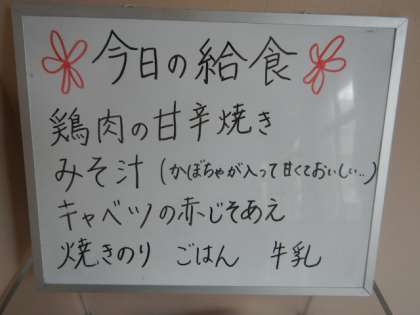 今日の給食
鶏肉の甘辛焼き
みそ汁（かぼちゃが入って甘くておいしい‥）
キャベツの赤じそあえ
焼きのり ごはん 牛乳